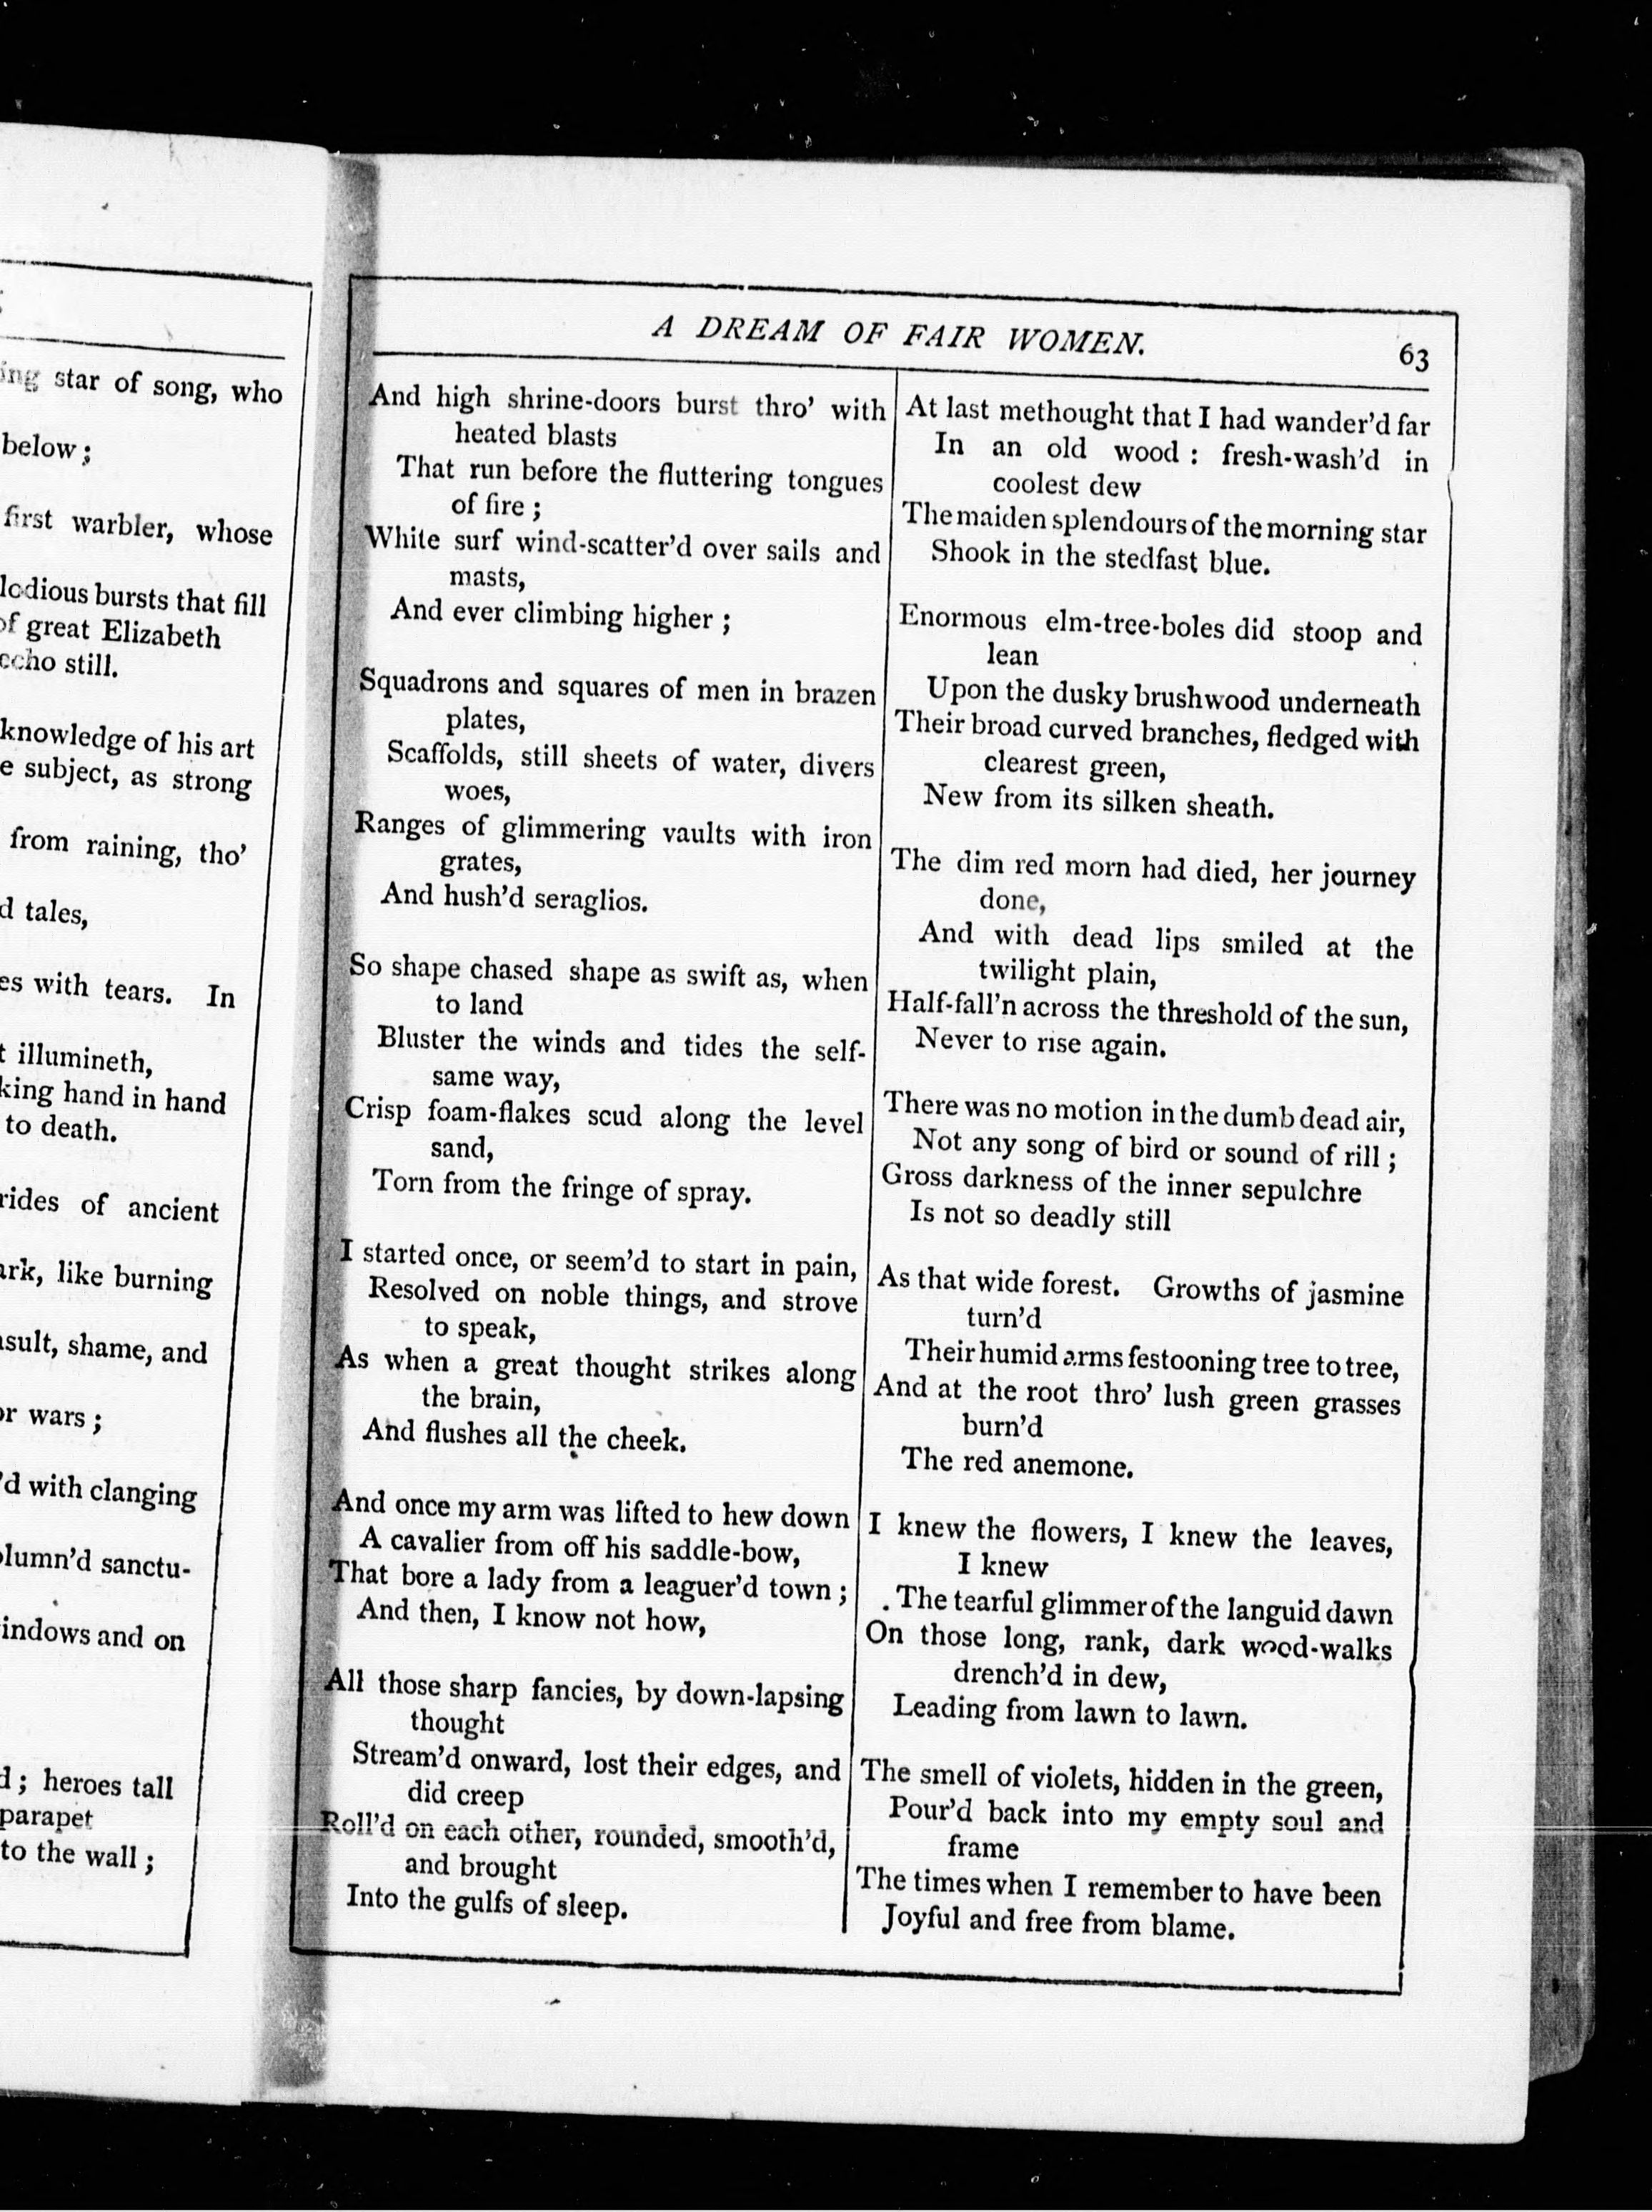 ing star of song, who
below;
first warbler, whose
lodious bursts that fill
of great Elizabeth
echo still.
knowledge of his art
e subject, as strong
from raining, tho'
d tales,
es with tears. In
t illumineth,
king hand in hand
to death.
rides of ancient
ark, like burning
sult, shame, and
or wars;
'd with clanging
olumn'd sanctu-
indows and on
d; heroes tall
parapet
to the wall;
A DREAM OF FAIR WOMEN. 63
And high shrine-doors burst thro' with
heated blasts
That run before the fluttering tongues
of fire;
White surf wind-scatter'd over sails and
masts,
And ever climbing higher;
Squadrons and squares of men in brazen
plates,
Scaffolds, still sheets of water, divers
woes,
Ranges of glimmering vaults with iron
grates,
And hush'd seraglios.
So shape chased shape as swift as, when
to land
Bluster the winds and tides the self-
same way,
Crisp foam-flakes scud along the level
sand,
Torn from the fringe of spray.
I started once, or seem'd to start in pain,
Resolved on noble things, and strove
to speak,
As when a great thought strikes along
the brain,
And flushes all the cheek.
And once my arm was lifted to hew down
A cavalier from off his saddle-bow,
That bore a lady from a leaguer'd town;
And then, I know not how,
All those sharp fancies, by down-lapsing
thought
Stream'd onward, lost their edges, and
did creep
Roll'd on each other, rounded, smooth'd,
and brought
Into the gulfs of sleep.
At last methought that I had wander'd far
In an old wood: fresh-wash'd in
coolest dew
The maiden splendours of the morning star
Shook in the stedfast blue.
Enormous elm-tree-boles did stoop and
lean
Upon the dusky brushwood underneath
Their broad curved branches, fledged with
clearest green,
New from its silken sheath.
The dim red morn had died, her journey
done,
And with dead lips smiled at the
twilight plain,
Half-fall'n across the threshold of the sun,
Never to rise again.
There was no motion in the dumb dead air,
Not any song of bird or sound of rill;
Gross darkness of the inner sepulchre
Is not so deadly still
As that wide forest. Growths of jasmine
turn'd
Their humid arms festooning tree to tree,
And at the root thro' lush green grasses
burn'd
The red anemone.
I knew the flowers, I knew the leaves,
I knew
The tearful glimmer of the languid dawn
On those long, rank, dark wood-walks
drench'd in dew,
Leading from lawn to lawn.
The smell of violets, hidden in the green,
Pour'd back into my empty soul and
frame
The times when I remember to have been
Joyful and free from blame.